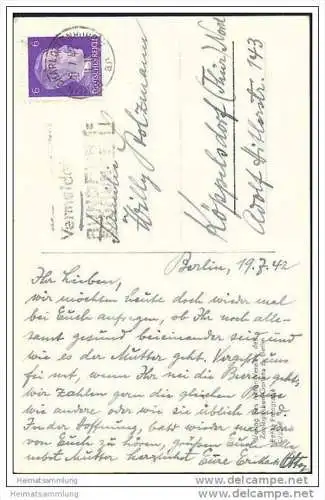 6
6
DEUTSCHES REICH
Vermeidet
Familie
Willy Stotzmann
Köppelsdorf (Thür) Nord
Adolf Hitlerstr. 143
Berlin, 19.7.42
Ihr Lieben,
wir möchten heute doch wieder mal
bei Euch anfragen, ob Ihr noch alle-
samt gesund beieinander seid und
wie es der Mutter geht. Vergeßt uns
wenn Ihr in die Beeren geht,
wir zahlen gern die gleichen Preise
wie andere oder wie sie üblich sind.
In der Hoffnung, bald wieder mal was
von Euch zu hören, grüßen Euch alle
nebst Mutter herzlichst Eure Erika + Otto
Heimatsammlung
Heimatsammlung
www.delcampe.net